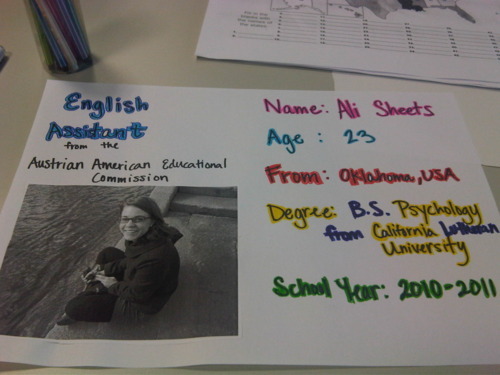 English
Assistant
from the
Austrian American Educational
Commission
Name: Ali Sheets
Age : 23
From: Oklahoma, USA
Degree: B.S. Psychology
from California Lutheran
University
School Year: 2010-2011